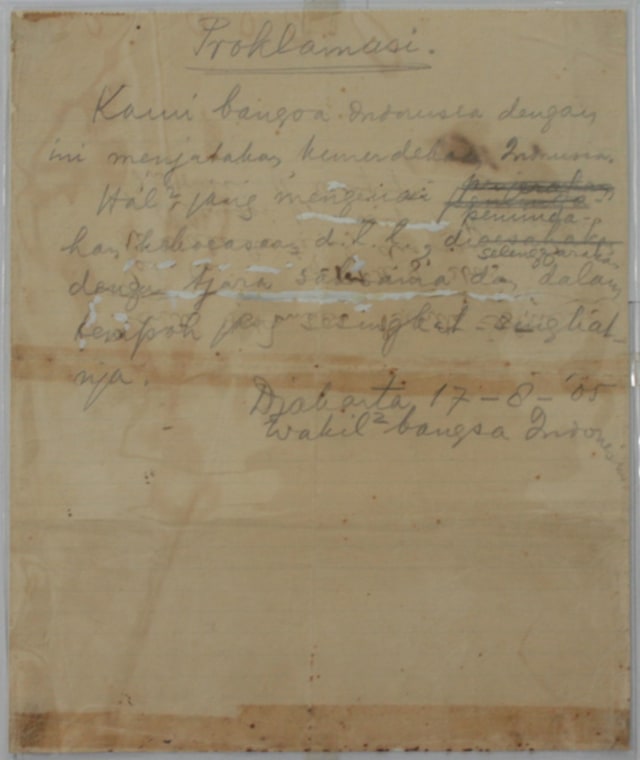 Proklamasi.
Kami bangsa Indonesia dengan
ini menjatakan kemerdekaan Indonesia.
Hal², jang mengenai
peminda-
han kekoeasaan d.l.l., dioesahakan
selenggarakan
dengan tjara saksama dan dalam
tempoh jang sesingkat-singkat-
nja.
Djakarta 17-8-'05
Wakil² bangsa Indonesia